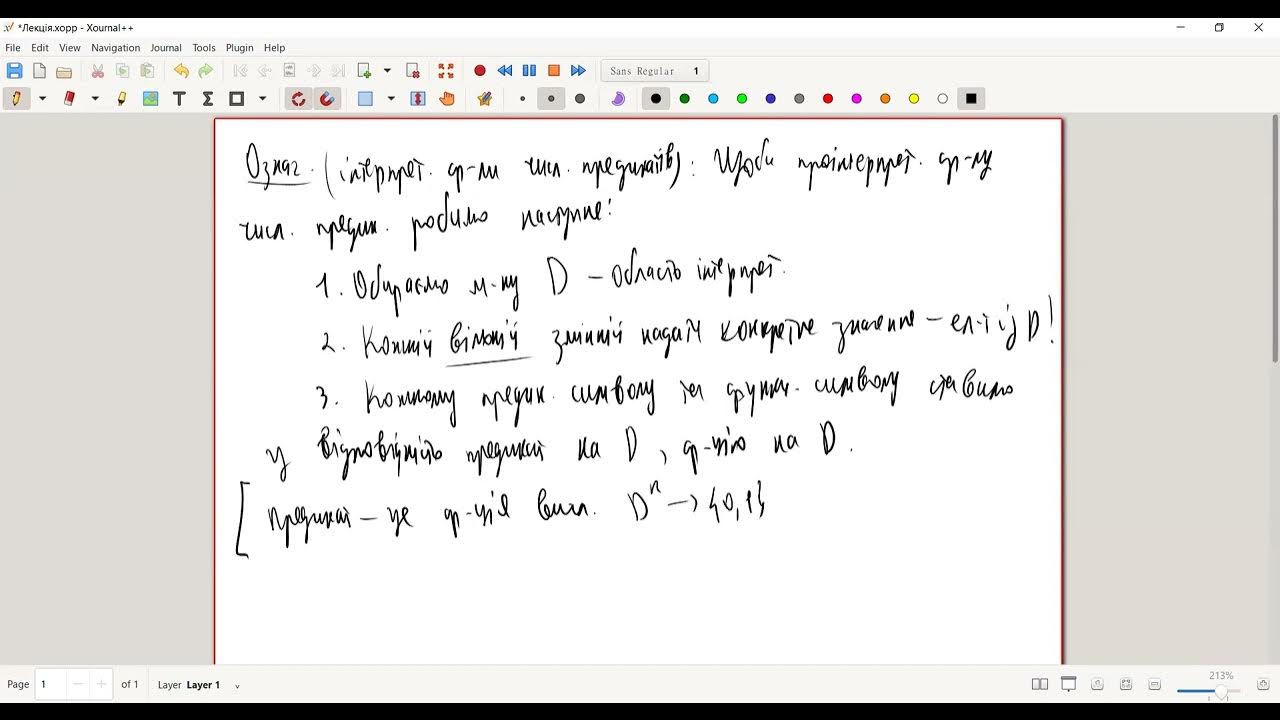 *Лекція.xopp - Xournal++
File Edit View Navigation Journal Tools Plugin Help
Sans Regular 1
Означ. (інтерпрет. ф-ли числ. предикатів): Щоби проінтерпрет. ф-лу
числ. предик. робимо наступне:
1. Обираємо м-ну D – область інтерпрет.
2. Кожній вільній змінній надати конкретне значення – ел-т із D!
3. Кожному предик. символу та функц. символу ставимо
у відповідність предикат на D, ф-цію на D.
Предикат – це ф-ція вигл. Dⁿ → {0,1}
Page 1 of 1 Layer Layer 1 213%